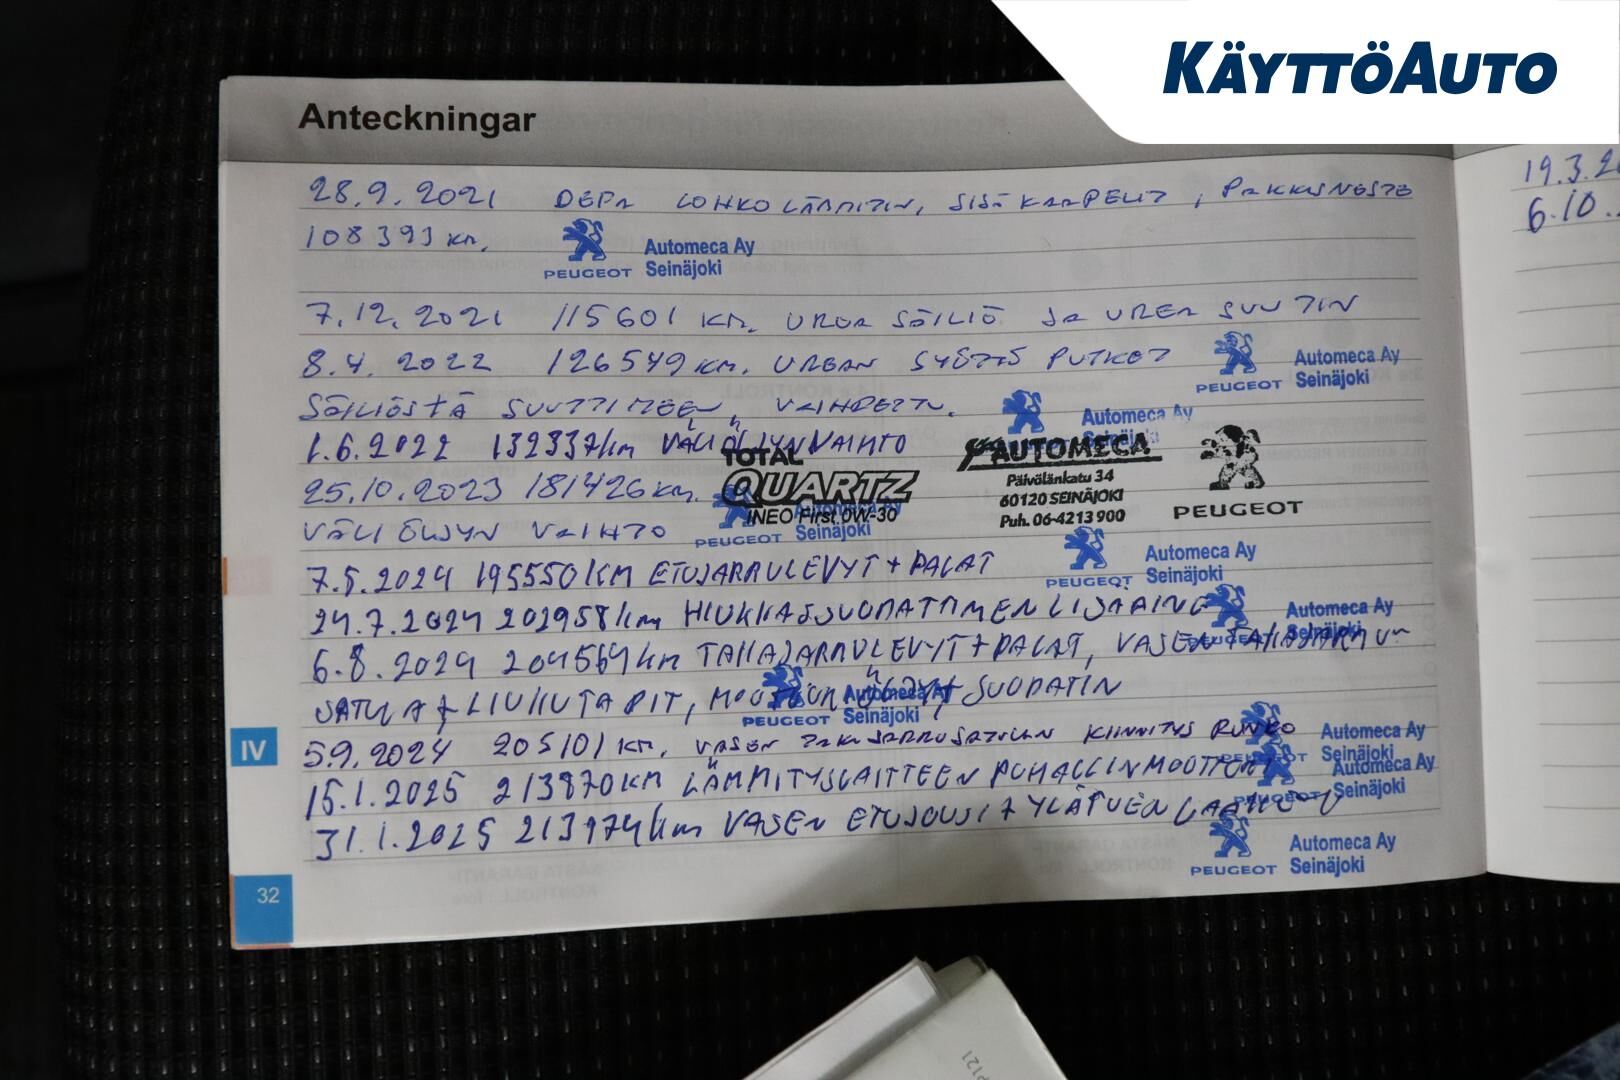 KÄYTTÖAUTO
Anteckningar
28.9.2021 DEFA LOHKOLÄMMITIN, SISÄKAAPELIT, PAKKASNESTE
108393 km.
PEUGEOT Automeca Ay
Seinäjoki
7.12.2021 115601 KM. UREA SÄILIÖ JA UREA SUUTIN
8.4.2022 126549 KM. UREAN SYÖTTÖ PUTKET
PEUGEOT Automeca Ay
Seinäjoki
SÄILIÖSTÄ SUUTTIMEEN, VAIHDETTU.
Automeca Ay
Seinäjoki
1.6.2022 132337 km VÄLIÖLJYNVAIHTO
TOTAL
QUARTZ
INEO First 0W-30
AUTOMECA
Päivölänkatu 34
60120 SEINÄJOKI
Puh. 06-4213 900
PEUGEOT
25.10.2023 181426 KM.
VÄLIÖLJYN VAIHTO
PEUGEOT Automeca Ay
Seinäjoki
7.5.2024 195550 KM ETUJARRULEVYT + PALAT
PEUGEOT Automeca Ay
Seinäjoki
24.7.2024 202958 km HIUKKASSUODATTIMEN LISÄAINE
PEUGEOT Automeca Ay
Seinäjoki
6.8.2024 204564 km TAKAJARRULEVYT + PALAT, VASEN TAKAJARRU-
SATULA + LIUKUTAPIT, MOOTTORIÖLJYT + SUODATIN
PEUGEOT Automeca Ay
Seinäjoki
IV
5.9.2024 205101 KM. VASEN TAKAJARRUSATULAN KIINNITYS RUNKO
PEUGEOT Automeca Ay
Seinäjoki
15.1.2025 213870 KM LÄMMITYSLAITTEEN PUHALLINMOOTTORI
PEUGEOT Automeca Ay
Seinäjoki
31.1.2025 213974 km VASEN ETUJOUSI + YLÄTUEN LAAKERI
PEUGEOT Automeca Ay
Seinäjoki
32
19.3.2
6.10.
P121